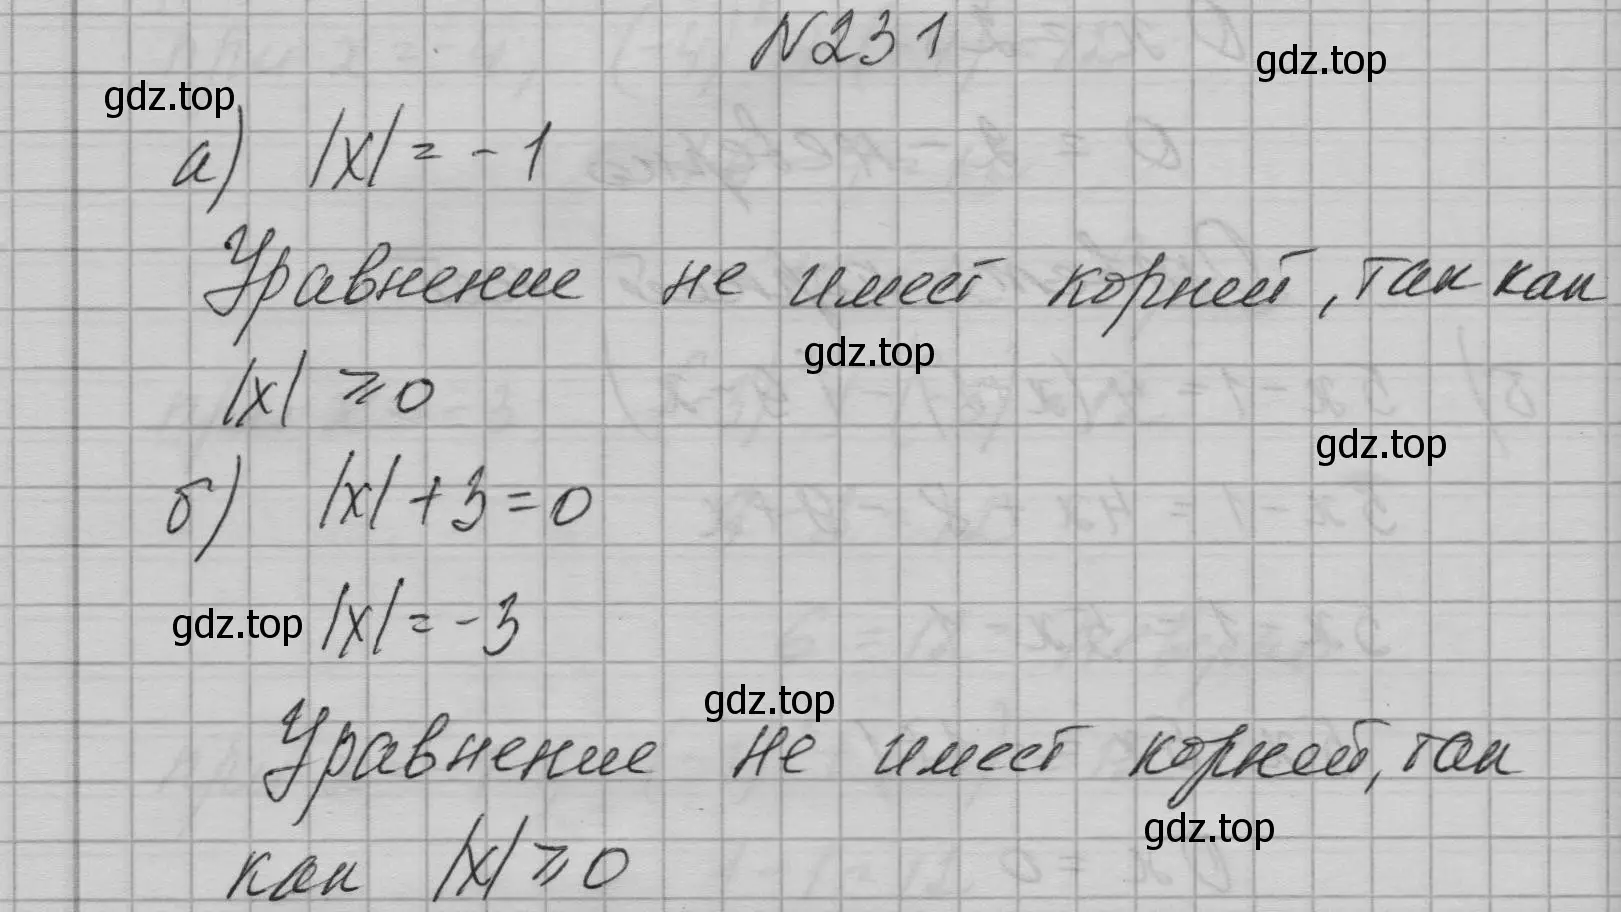 №231
gdz.top
gdz.top
а) |x| = -1
Уравнение не имеет корней, так как
gdz.top
|x| ⩾ 0
gdz.top
б) |x| + 3 = 0
gdz.top |x| = -3
gdz.top
Уравнение не имеет корней, так
gdz.top
как |x| ⩾ 0